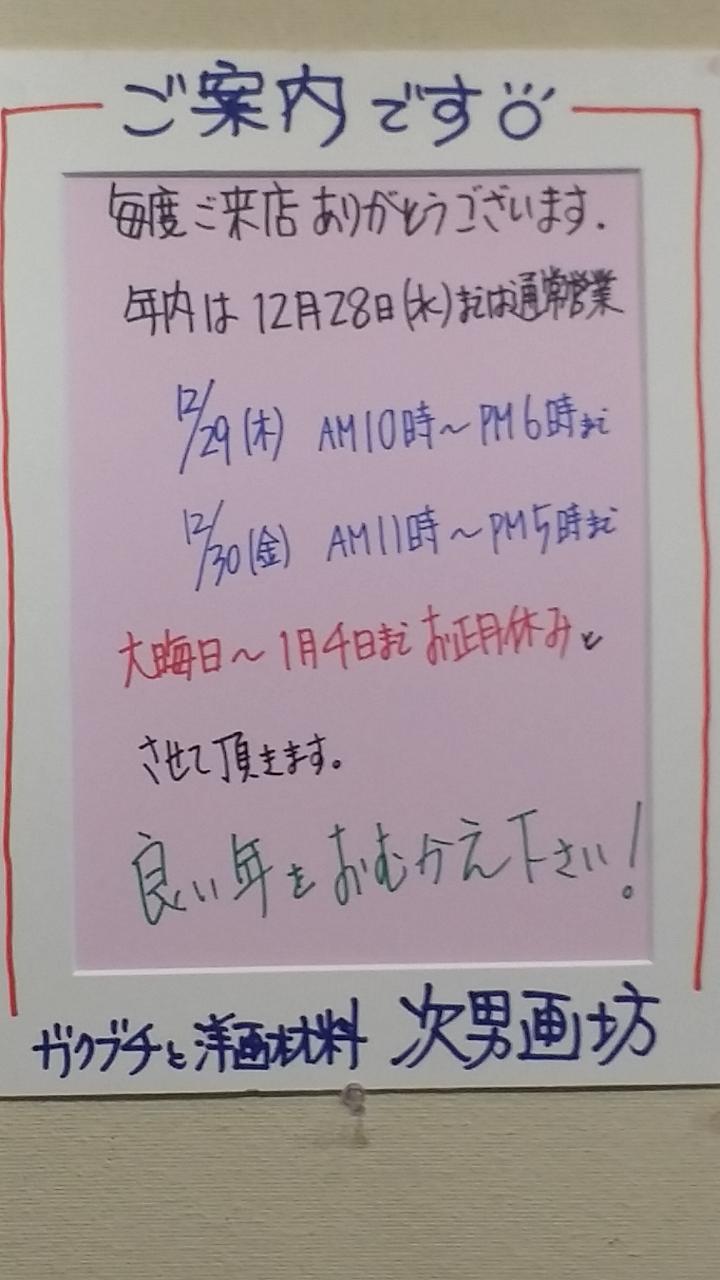 ご案内です
毎度ご来店ありがとうございます.
年内は12月28日(水)までは通常営業
12/29(木) AM10時～PM6時まで
12/30(金) AM11時～PM5時まで
大晦日～1月4日までお正月休みと
させて頂きます。
良い年をおむかえ下さい!
ガクブチと洋画材料 次男画坊